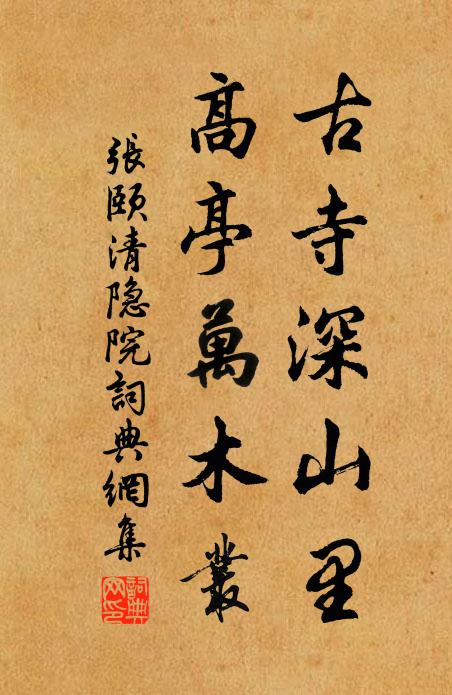 古寺深山里
高亭萬木叢
張頤清隐院詞典網集
詞典网印